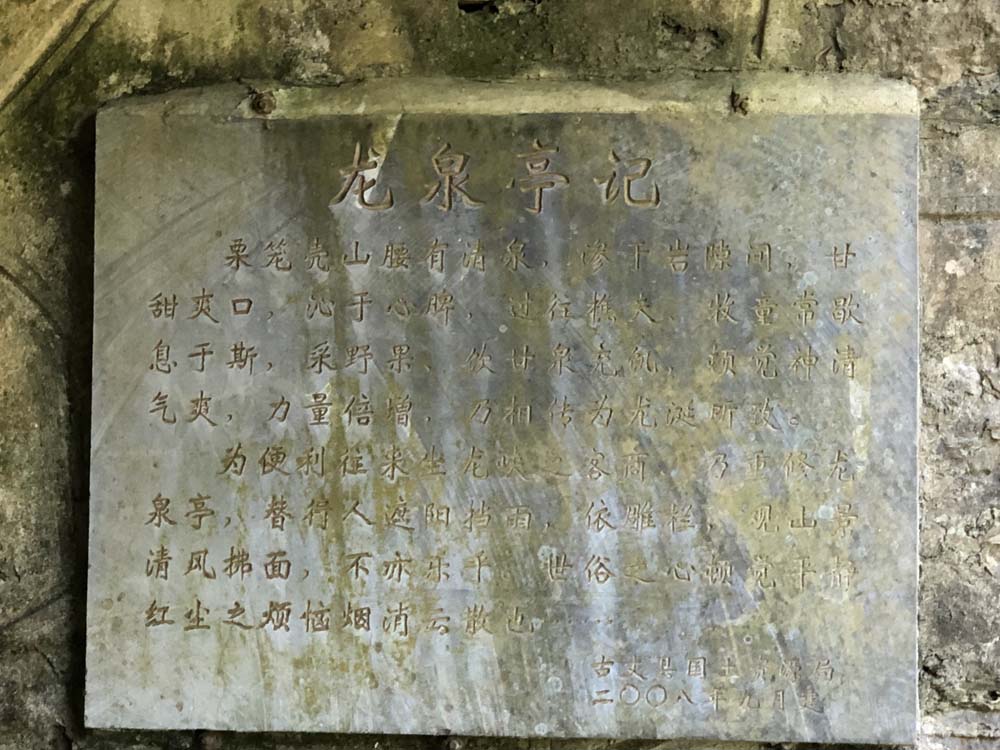 龙泉亭记
栗笼壳山腰有清泉，渗于岩隙间，甘
甜爽口，沁于心脾，过往樵夫、牧童常歇
息于斯，采野果、饮甘泉充饥，顿觉神清
气爽，力量倍增，乃相传为龙涎所致。
为便利往来坐龙峡之客商，乃重修龙
泉亭，替得人遮阳挡雨，依雕栏，观山景
清风拂面，不亦乐乎。世俗之心顿觉平静
红尘之烦恼烟消云散也……
古丈县国土资源局
二〇〇八年九月建